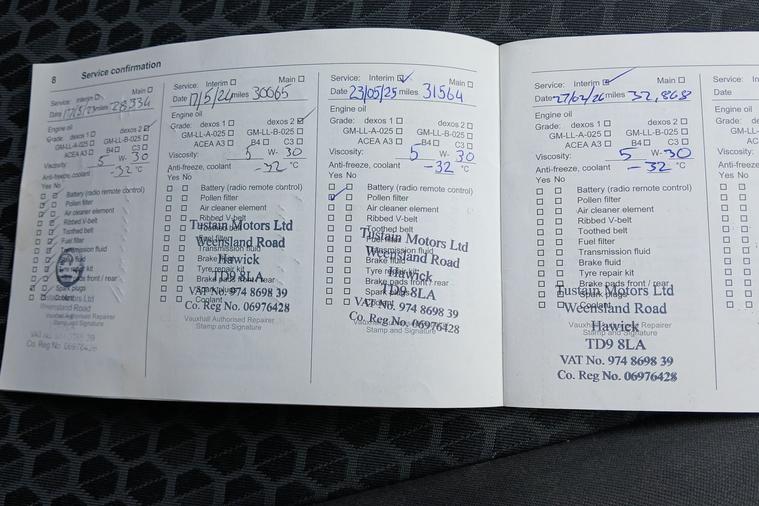 8 Service confirmation
Service: Interim
Main
Date miles 28334
Engine oil
Grade: dexos 1 dexos 2
GM-LL-A-025 GM-LL-B-025
ACEA A3 B4 C3
Viscosity: 5 W- 30
Anti-freeze, coolant -32 °C
Yes No
Battery (radio remote control)
Pollen filter
Air cleaner element
Ribbed V-belt
Toothed belt
Fuel filter
Transmission fluid
Brake fluid
Tyre repair kit
Brake pads front / rear
Spark plugs
Coolant
Tustain Motors Ltd
Weensland Road
Hawick
Vauxhall Authorised Repairer
Stamp and Signature
Co. Reg No. 06976428
Service: Interim
Main
Date 17/5/24 miles 30065
Engine oil
Grade: dexos 1 dexos 2
GM-LL-A-025 GM-LL-B-025
ACEA A3 B4 C3
Viscosity: 5 W- 30
Anti-freeze, coolant -32 °C
Yes No
Battery (radio remote control)
Pollen filter
Air cleaner element
Ribbed V-belt
Toothed belt
Tustain Motors Ltd
Fuel filter
Weensland Road
Transmission fluid
Brake fluid
Hawick
Tyre repair kit
TD9 8LA
Brake pads front / rear
Spark plugs
VAT No. 974 8698 39
Coolant
Co. Reg No. 06976428
Vauxhall Authorised Repairer
Stamp and Signature
Service: Interim
Main
Date 23/05/25 miles 31564
Engine oil
Grade: dexos 1 dexos 2
GM-LL-A-025 GM-LL-B-025
ACEA A3 B4 C3
Viscosity: 5 W- 30
Anti-freeze, coolant -32 °C
Yes No
Battery (radio remote control)
Pollen filter
Air cleaner element
Ribbed V-belt
Toothed belt
Tustain Motors Ltd
Fuel filter
Transmission fluid
Weensland Road
Brake fluid
Tyre repair kit
Hawick
Brake pads front / rear
TD9 8LA
Spark plugs
Coolant
VAT No. 974 8698 39
Co. Reg No. 06976428
Vauxhall Authorised Repairer
Stamp and Signature
Service: Interim
Main
Date 27/02/26 miles 32,868
Engine oil
Grade: dexos 1 dexos 2
GM-LL-A-025 GM-LL-B-025
ACEA A3 B4 C3
Viscosity: 5 W- 30
Anti-freeze, coolant -32 °C
Yes No
Battery (radio remote control)
Pollen filter
Air cleaner element
Ribbed V-belt
Toothed belt
Fuel filter
Transmission fluid
Brake fluid
Tyre repair kit
Brake pads front / rear
Tustain Motors Ltd
Spark plugs
Coolant
Weensland Road
Vauxhall Authorised Repairer
Hawick
Stamp and Signature
TD9 8LA
VAT No. 974 8698 39
Co. Reg No. 06976428
Service: In
Date
Engine oil
Grade: de
GM-LL
AC
Viscosity:
Anti-freeze
Yes No